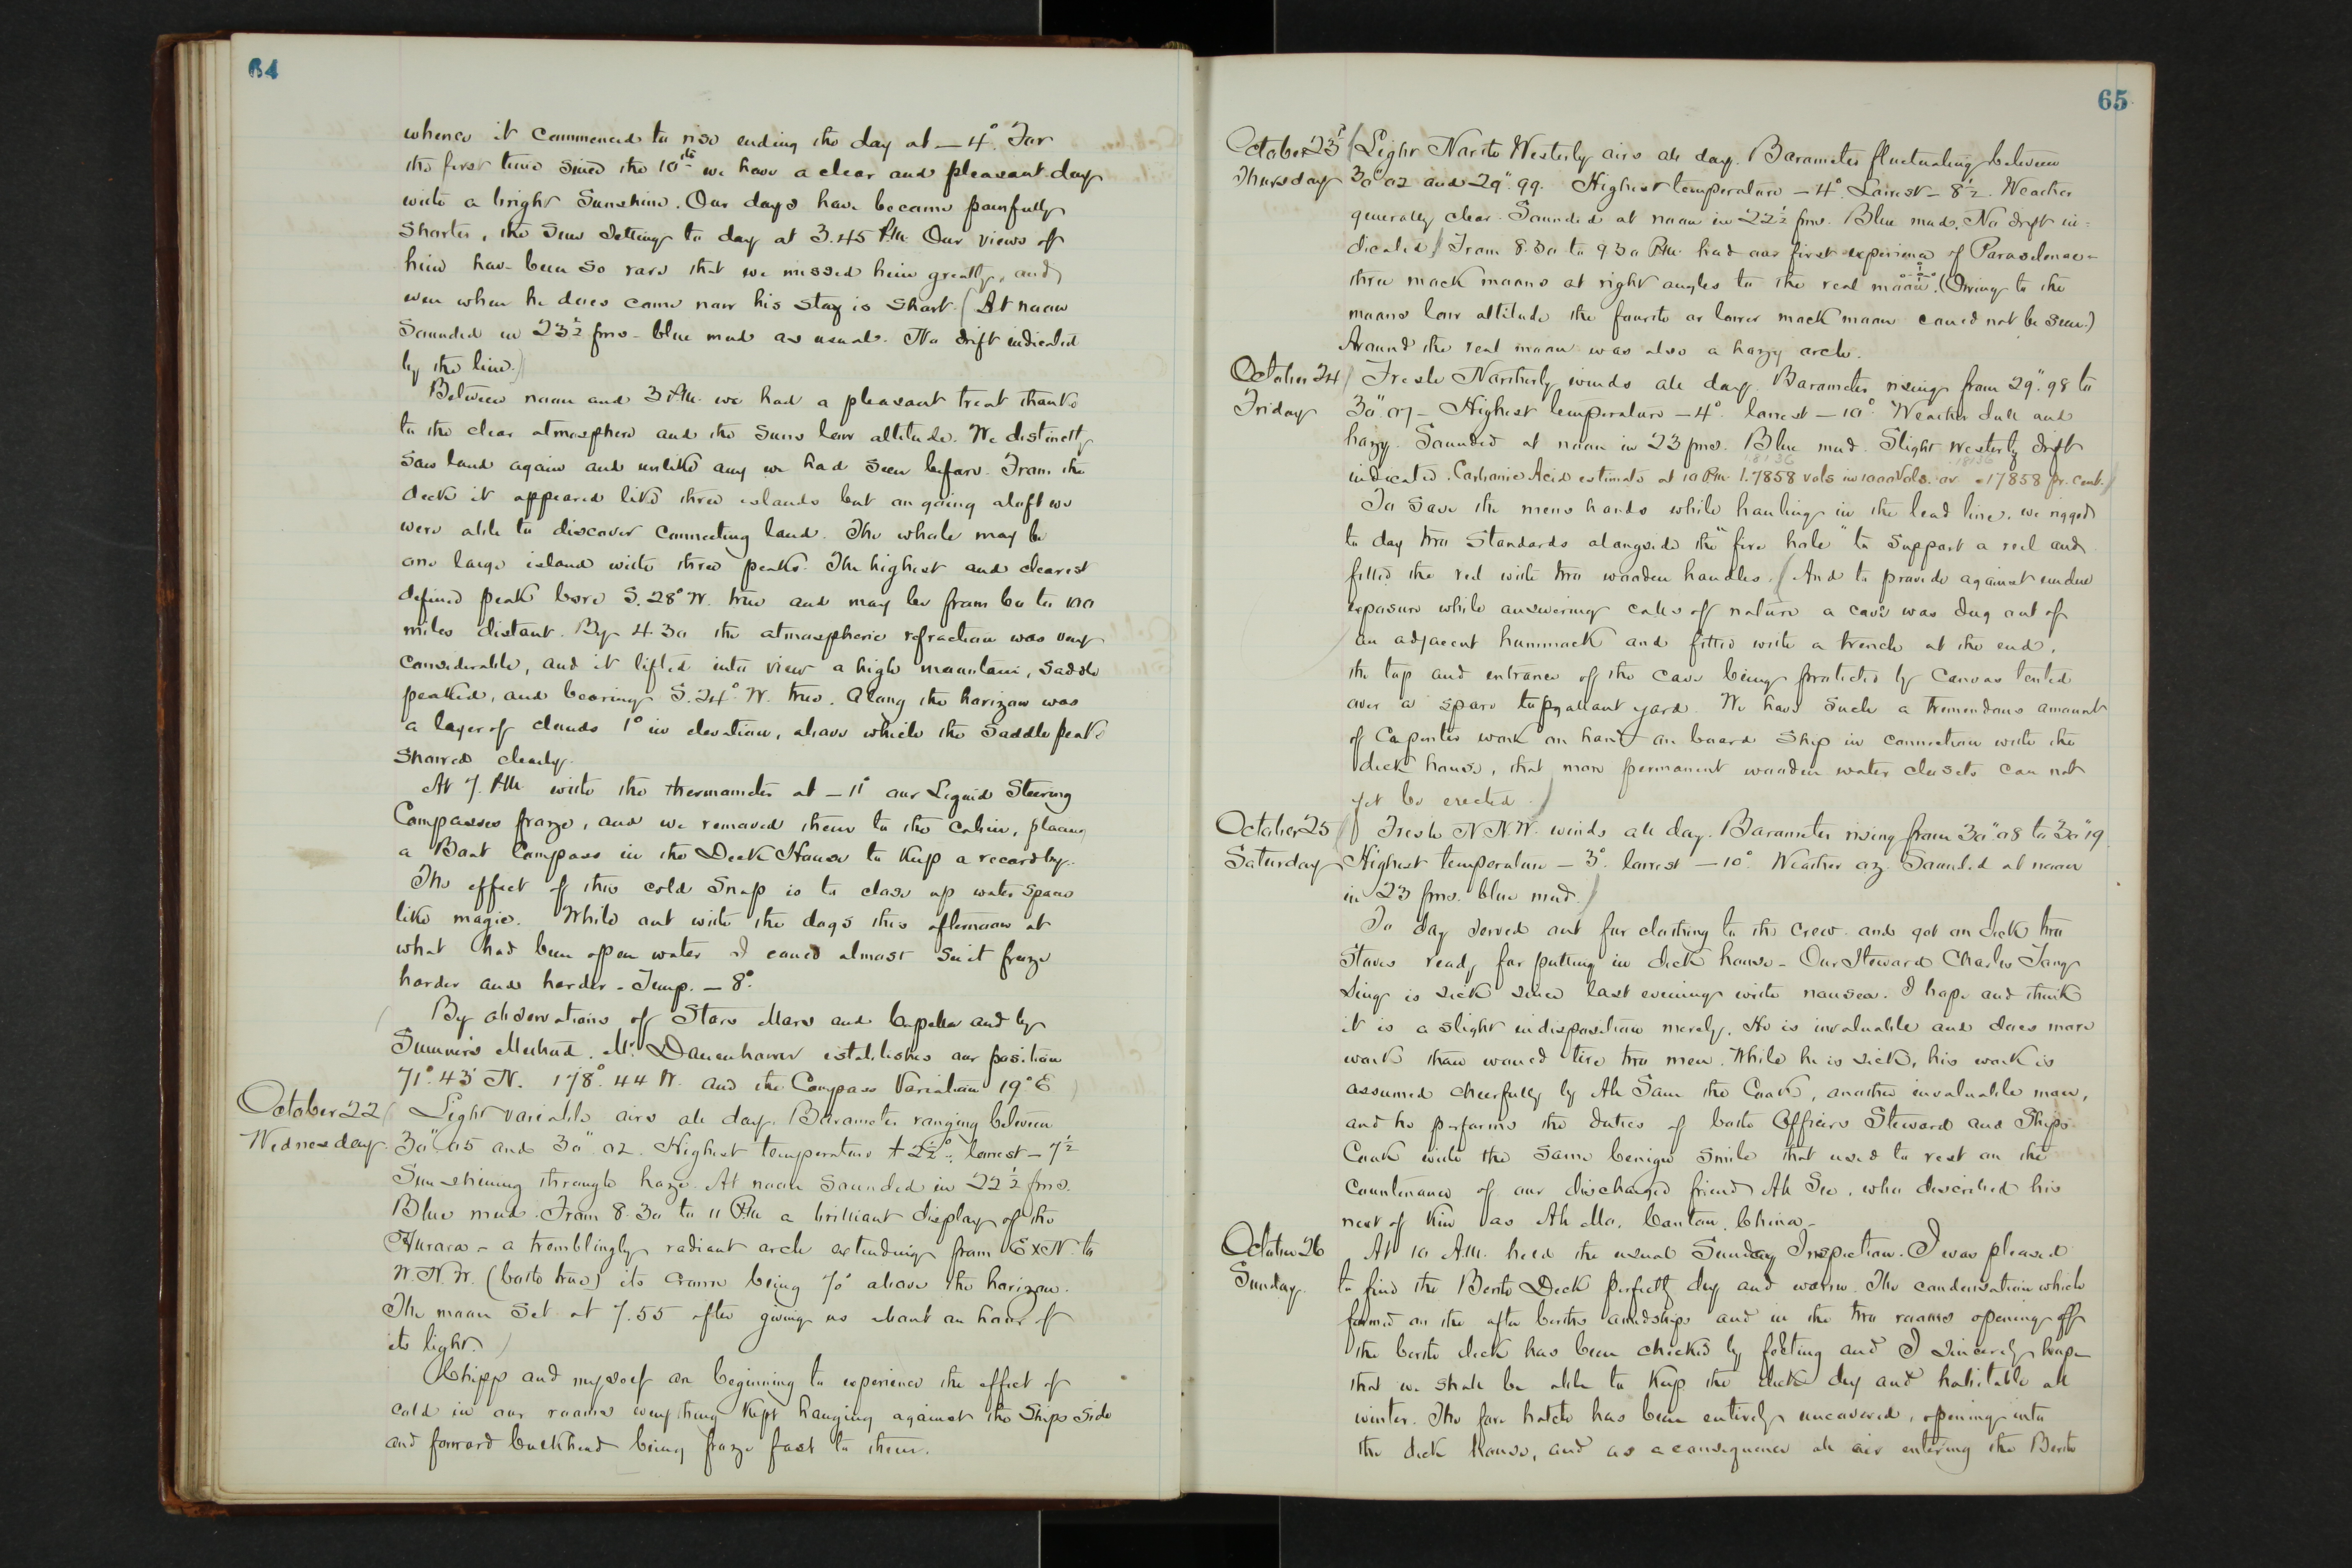 64
whence it commenced to rise ending the day at – 4°. For
the first time since the 10th we have a clear and pleasant day
with a bright Sunshine. Our days have become painfully
shorter, the Sun setting to day at 3.45 P.M. Our views of
him have been so rare that we missed him greatly, and
even when he does come now his stay is short. (At noon
Sounded in 23½ fms – blue mud as usual. No drift indicated
by the line.)
Between noon and 3 P.M. we had a pleasant treat thanks
to the clear atmosphere and the Suns low altitude. We distinctly
saw land again and unlike any we had seen before. From the
deck it appeared like three islands but on going aloft we
were able to discover connecting land. The whole may be
one large island with three peaks. The highest and clearest
defined peak bore S. 28° W. true and may be from 60 to 100
miles distant. By 4 30 the atmospheric refraction was very
considerable, and it lifted into view a high mountain, saddle
peaked, and bearing S. 24° W. true. Along the horizon was
a layer of clouds 1° in elevation, above which the Saddle peak
showed clearly.
At 7. P.M. with the thermometer at – 11° our Liquid Steering
Compasses froze, and we removed them to the Cabin, placing
a Boat Compass in the Deck House to keep a record by.
The effect of this cold snap is to close up water spaces
like magic. While out with the dogs this afternoon at
what had been open water I could almost see it freeze
harder and harder – Temp. – 8°.
(By observations of Stars Mars and Capella and by
Sumner's Method. Mr. Danenhower establishes our position
71°. 43' N. 178°. 44 W. and the Compass Variation 19° E)
October 22
Wednesday
(Light variable airs all day. Barometer ranging between
30" 05 and 30" 02. Highest temperature + 2½°: lowest – 7½
Sun shining through haze. At noon Sounded in 22½ fms.
Blue mud. From 8.30 to 11 P.M. a brilliant display of the
Aurora – a tremblingly radiant arch extending from E x N. to
W. N. W. (both true) its crown being 70° above the horizon.
The moon set at 7.55 after giving us about an hour of
its light.)
Chipp and myself are beginning to experience the effect of
cold in our rooms everything kept hanging against the Ships side
and forward bulkhead being froze fast to them.
65
October 23d
Thursday
(Light North Westerly airs all day. Barometer fluctuating between
30" 02 and 29". 99. Highest temperature – 4°. Lowest – 8½. Weather
generally clear. Sounded at noon in 22½ fms. Blue mud. No drift in=
dicated) From 8.30 to 9 30 P.M. had our first experience of Paraselenae –
three mock moons at right angles to the real moon. (Owing to the
moons low altitude the fourth or lower mock moon could not be seen.)
Around the real moon was also a hazy arch.
October 24
Friday
(Fresh Northerly winds all day. Barometer rising from 29". 98 to
30". 07 – Highest temperature – 4°. lowest – 10°. Weather dull and
hazy. Sounded at noon in 23 fms. Blue mud. Slight Westerly drift
18136 .18136
indicated. Carbonic Acid estimate at 10 P.M. 1.7858 vols in 1000 Vols. or .17858 pr. cent.)
To save the mens hands while hauling in the lead line, we rigged
to day two Standards alongside the "fire hole" to support a reel and
fitted the reel with two wooden handles. (And to provide against undue
exposure while answering calls of nature a cave was dug out of
an adjacent hummock and fitted with a trench at the end,
the top and entrance of the cave being protected by Canvas tented
over a spare topgallant yard. We have such a tremendous amount
of Capenter work on hand on board Ship in connection with the
deck house, that more permanent wooden water closets can not
yet be erected.)
October 25
Saturday
(Fresh N. N. W. winds all day. Barometer rising from 30" 08 to 30" 19
Highest temperature – 3°. lowest – 10°. Weather oz. Sounded at noon
in 23 fms. blue mud.)
To day served out fur clothing to the crew. and got on deck two
Stoves ready for putting in deck house – Our Steward Charles Tong
Sing is sick since last evening with nausea. I hope and think
it is a slight indisposition merely. He is invaluable and does more
work than would tire two men. While he is sick, his work is
assumed cheerfully by Ah Sam the Cook, another invaluable man,
and he performs the duties of both Officers Steward and Ships
Cook with the same benign smile that used to rest on the
Countenance of our discharged friend Ah See, who described his
next of kin as Ah Mo. Canton. China –
October 26
Sunday.
At 10 A.M. held the usual Sunday Inspection. I was pleased
to find the Berth Deck perfectly dry and warm. The condensation which
formed on the after berths amidships and in the two rooms opening off
the berth deck has been checked by felting and I sincerely hope
that we shall be able to keep the deck dry and habitable all
winter. The fore hatch has been entirely uncovered, opening into
the deck house, and as a consequence all air entering the Berth